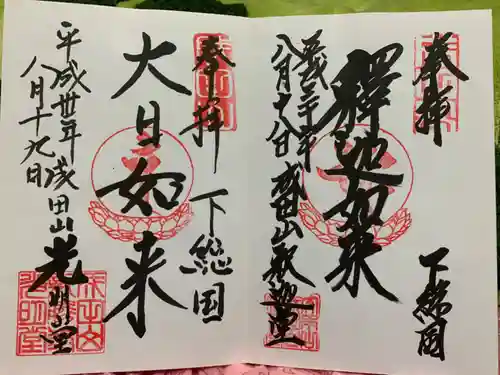 奉拝
下総国
釋迦如来
平成三十年
八月十九日
成田山釈迦堂
奉拝
下総国
大日如来
平成卅年
八月十九日
成田山光明堂